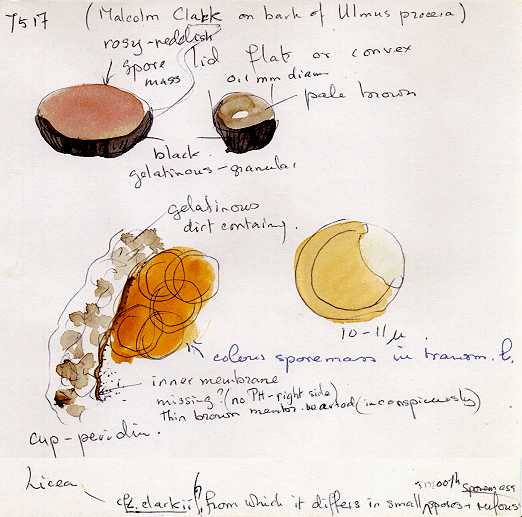 7517 (Malcolm Clark on bark of Ulmus procera)
rosy-reddish
spore mass
lid flat or convex
0.1 mm diam
pale brown
black
gelatinous-granular
gelatinous
dirt containing.
10-11 µ
colour sporemass in transm. l.
inner membrane
missing? (no PH-right side)
Thin brown membr. (inconspicuously)
cup-peridium.
Licea
cf L. clarkii, from which it differs in small, smooth spores + rufous sporemass